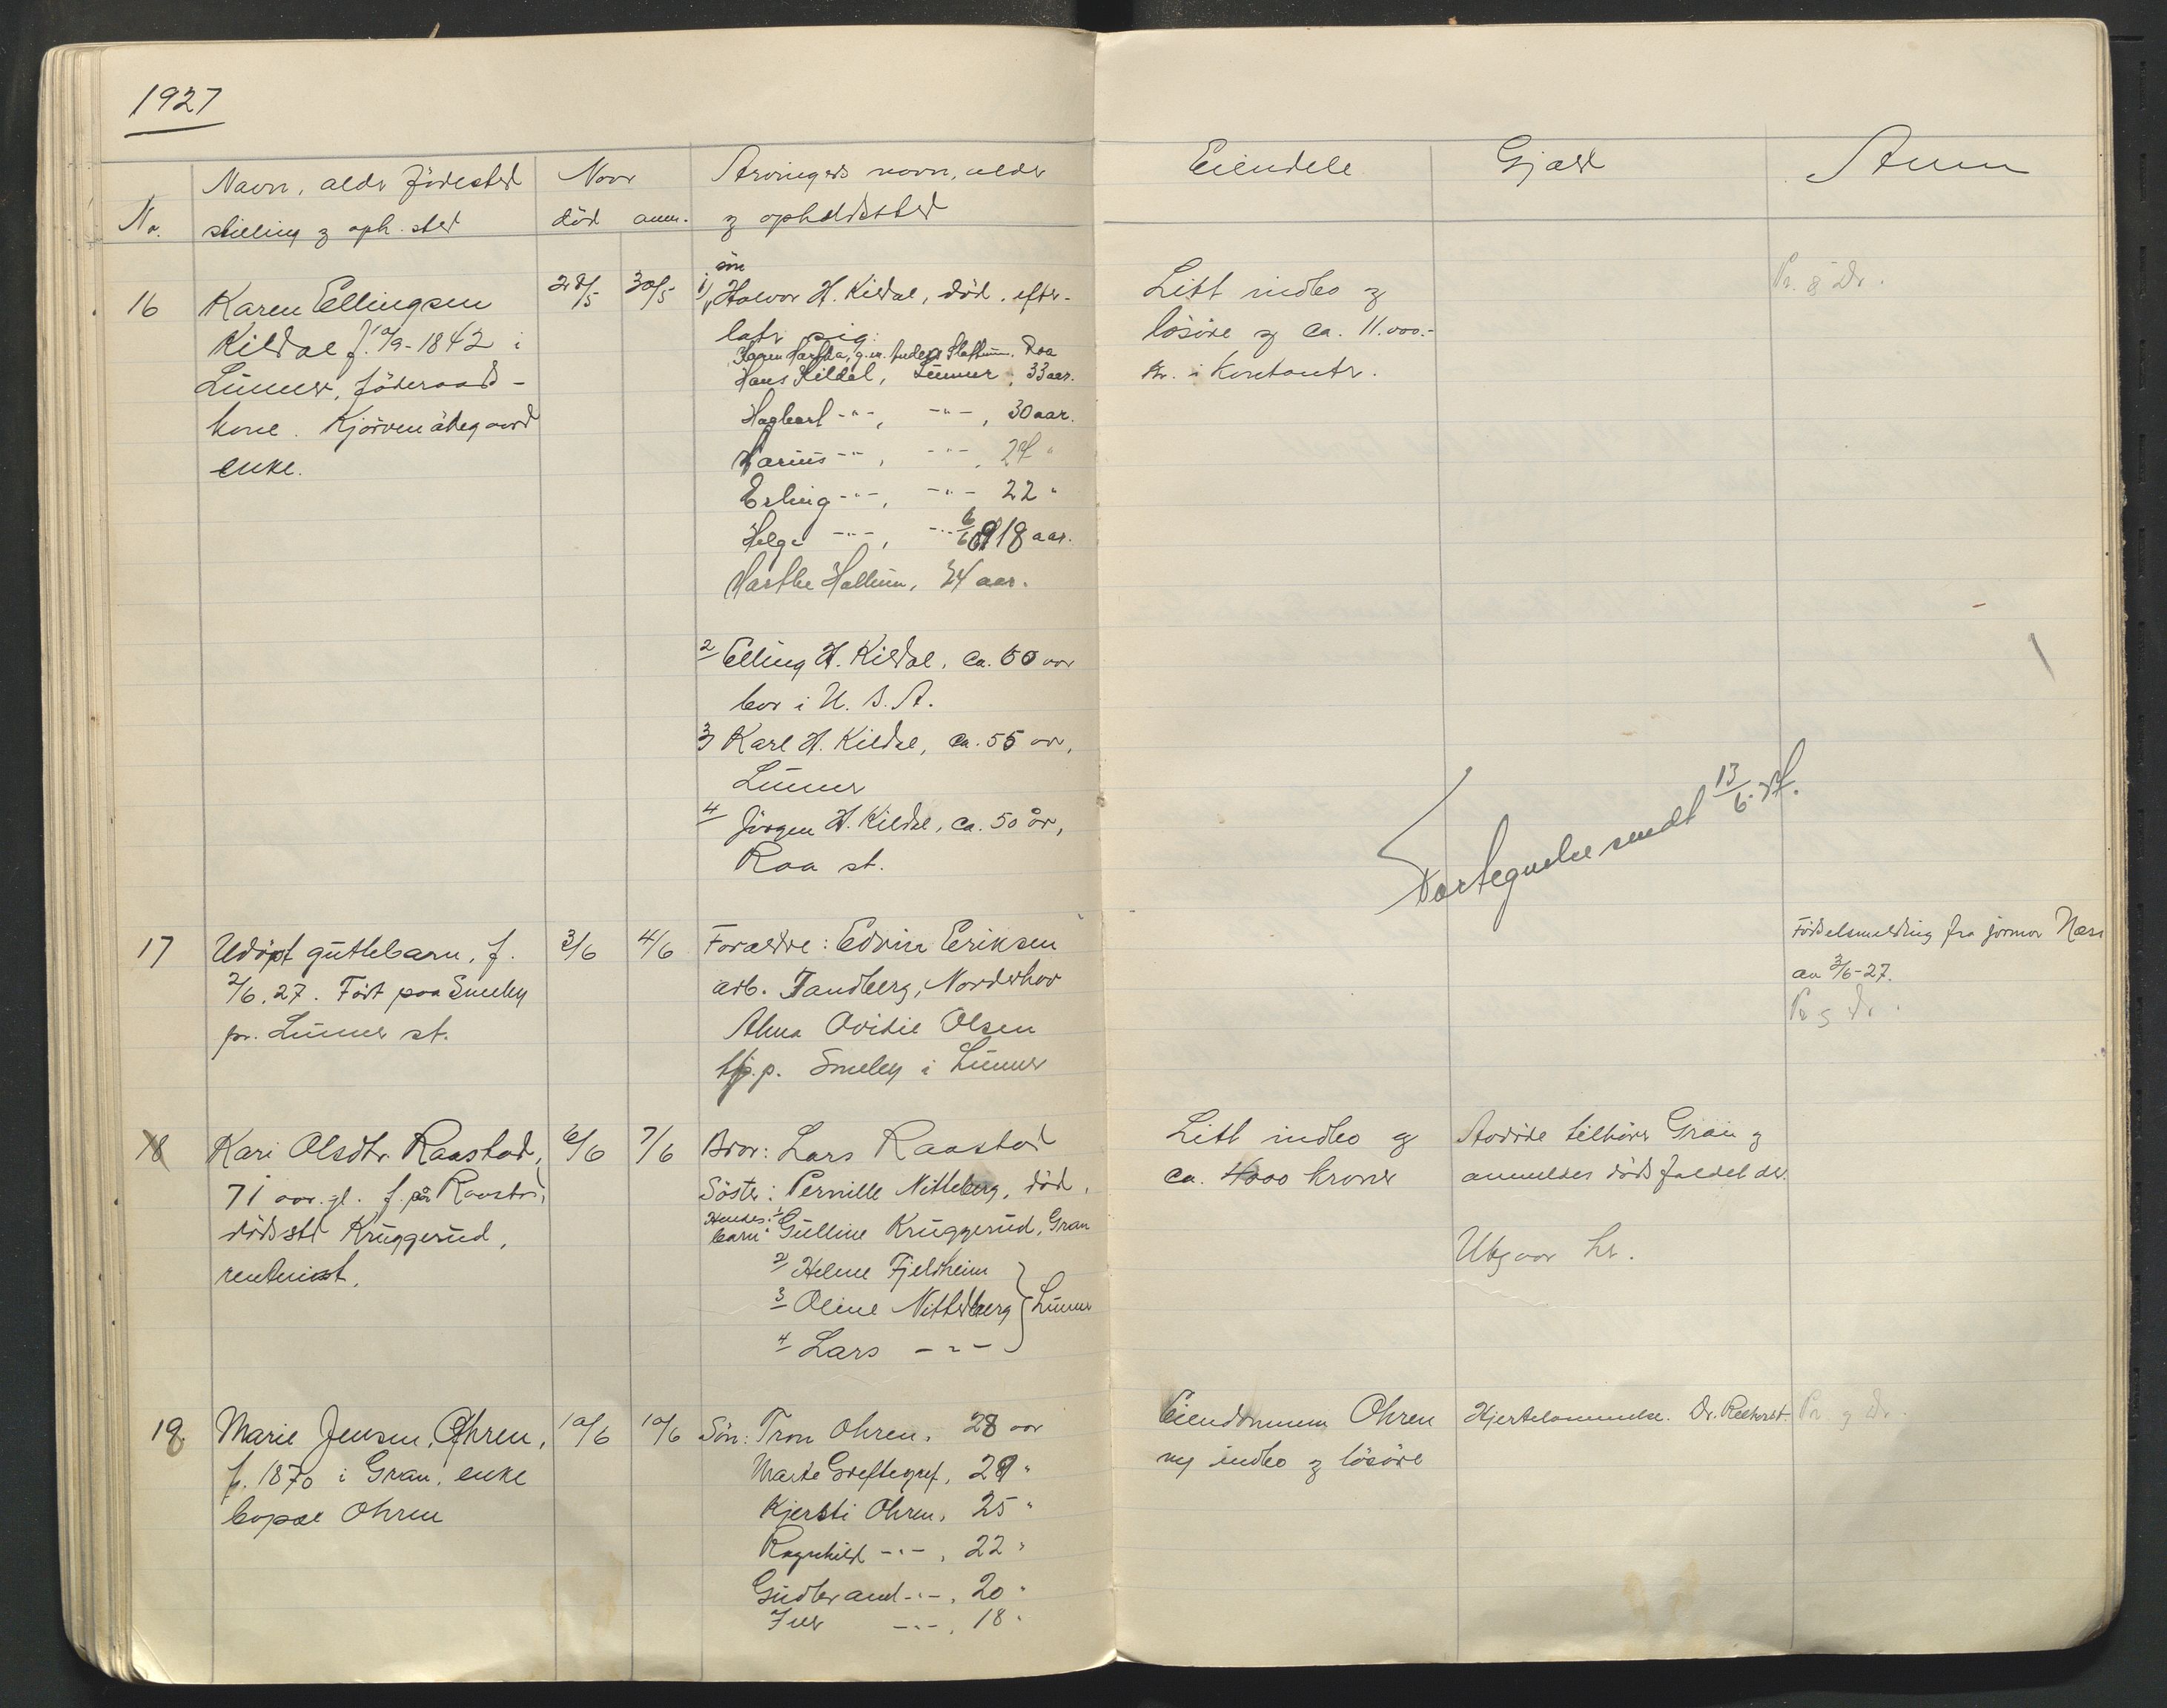 1927
No.
Navn, alder fødested
stilling & oph. sted
Naar
død anm.
Arvingers navn, alder
& opholdssted
Eiendele
Gjæld
Anm
16
Karen Ellingsen
Kildal f. 10/9-1842 i
Lunner, føderaad-
kone. Kjørven ødegaard
enke.
28/5
30/5
søn
1/ Halvor H. Kildal, død. efter-
latt sig:
Karen Martha, g.m. Anders Roa
Hans Kildal, Lunner, 33 aar.
Hagbart -"-, -"-, 30 aar.
Marius -"-, -"-, 24 "
Erling -"-, -"- 22 "
Helge -"-, -"- 18 aar.
Marthe Hallum, 34 aar.
2 Elling H. Kildal, ca. 60 aar
bor i U.S.A.
3 Karl H. Kildal, ca. 55 aar,
Lunner
4 Jörgen H. Kildal, ca. 50 år,
Roa st.
Litt indbo &
løsøre & ca. 11.000.-
kr. i kontanter.
Pr. & Dr.
Fortegnelse sendt 13/6.
17
Udøpt guttebarn, f.
2/6.27. Født paa Smeby
pr. Lunner st.
3/6
4/6
Foraldre: Edvin Eriksen
arb. Tandberg, Norderhov
Alma Ovidie Olsen
tj.p. Smeby i Lunner
Fødselsmelding fra jormor Næss
av 3/6-27.
Pr & Dr.
18
Kari Olsdtr. Raastad,
71 aar. gl. f. på Raastad,
dødsted Kruggerud,
rentenist.
6/6
7/6
Bror: Lars Raastad
Søster: Pernille Nitteberg, død.
Hendes barn: 1 Gulline Kruggerud, Gran
2/ Helene Fjeldheim
3 Oline Nitteberg } Lunner
4 Lars -"-
Litt indbo &
ca. 4000 kroner
Avdøde tilhører Gran &
anmeldes dødsfaldet der.
Utgaar her.
19
Marie Jensen, Ohren,
f. 1870 i Gran, enke
bopæl Ohren
10/6
10/6
Søn: Tron Ohren, 28 aar
Marte Greftegref, 29 "
Kjersti Ohren, 25 "
Ragnhild -"-, 22 "
Gudbrand -"-, 20 "
Iver -"-, 18 "
Eiendommen Ohren
og indbo & løsøre
Hjertelammelse. Dr.
Pr & Dr